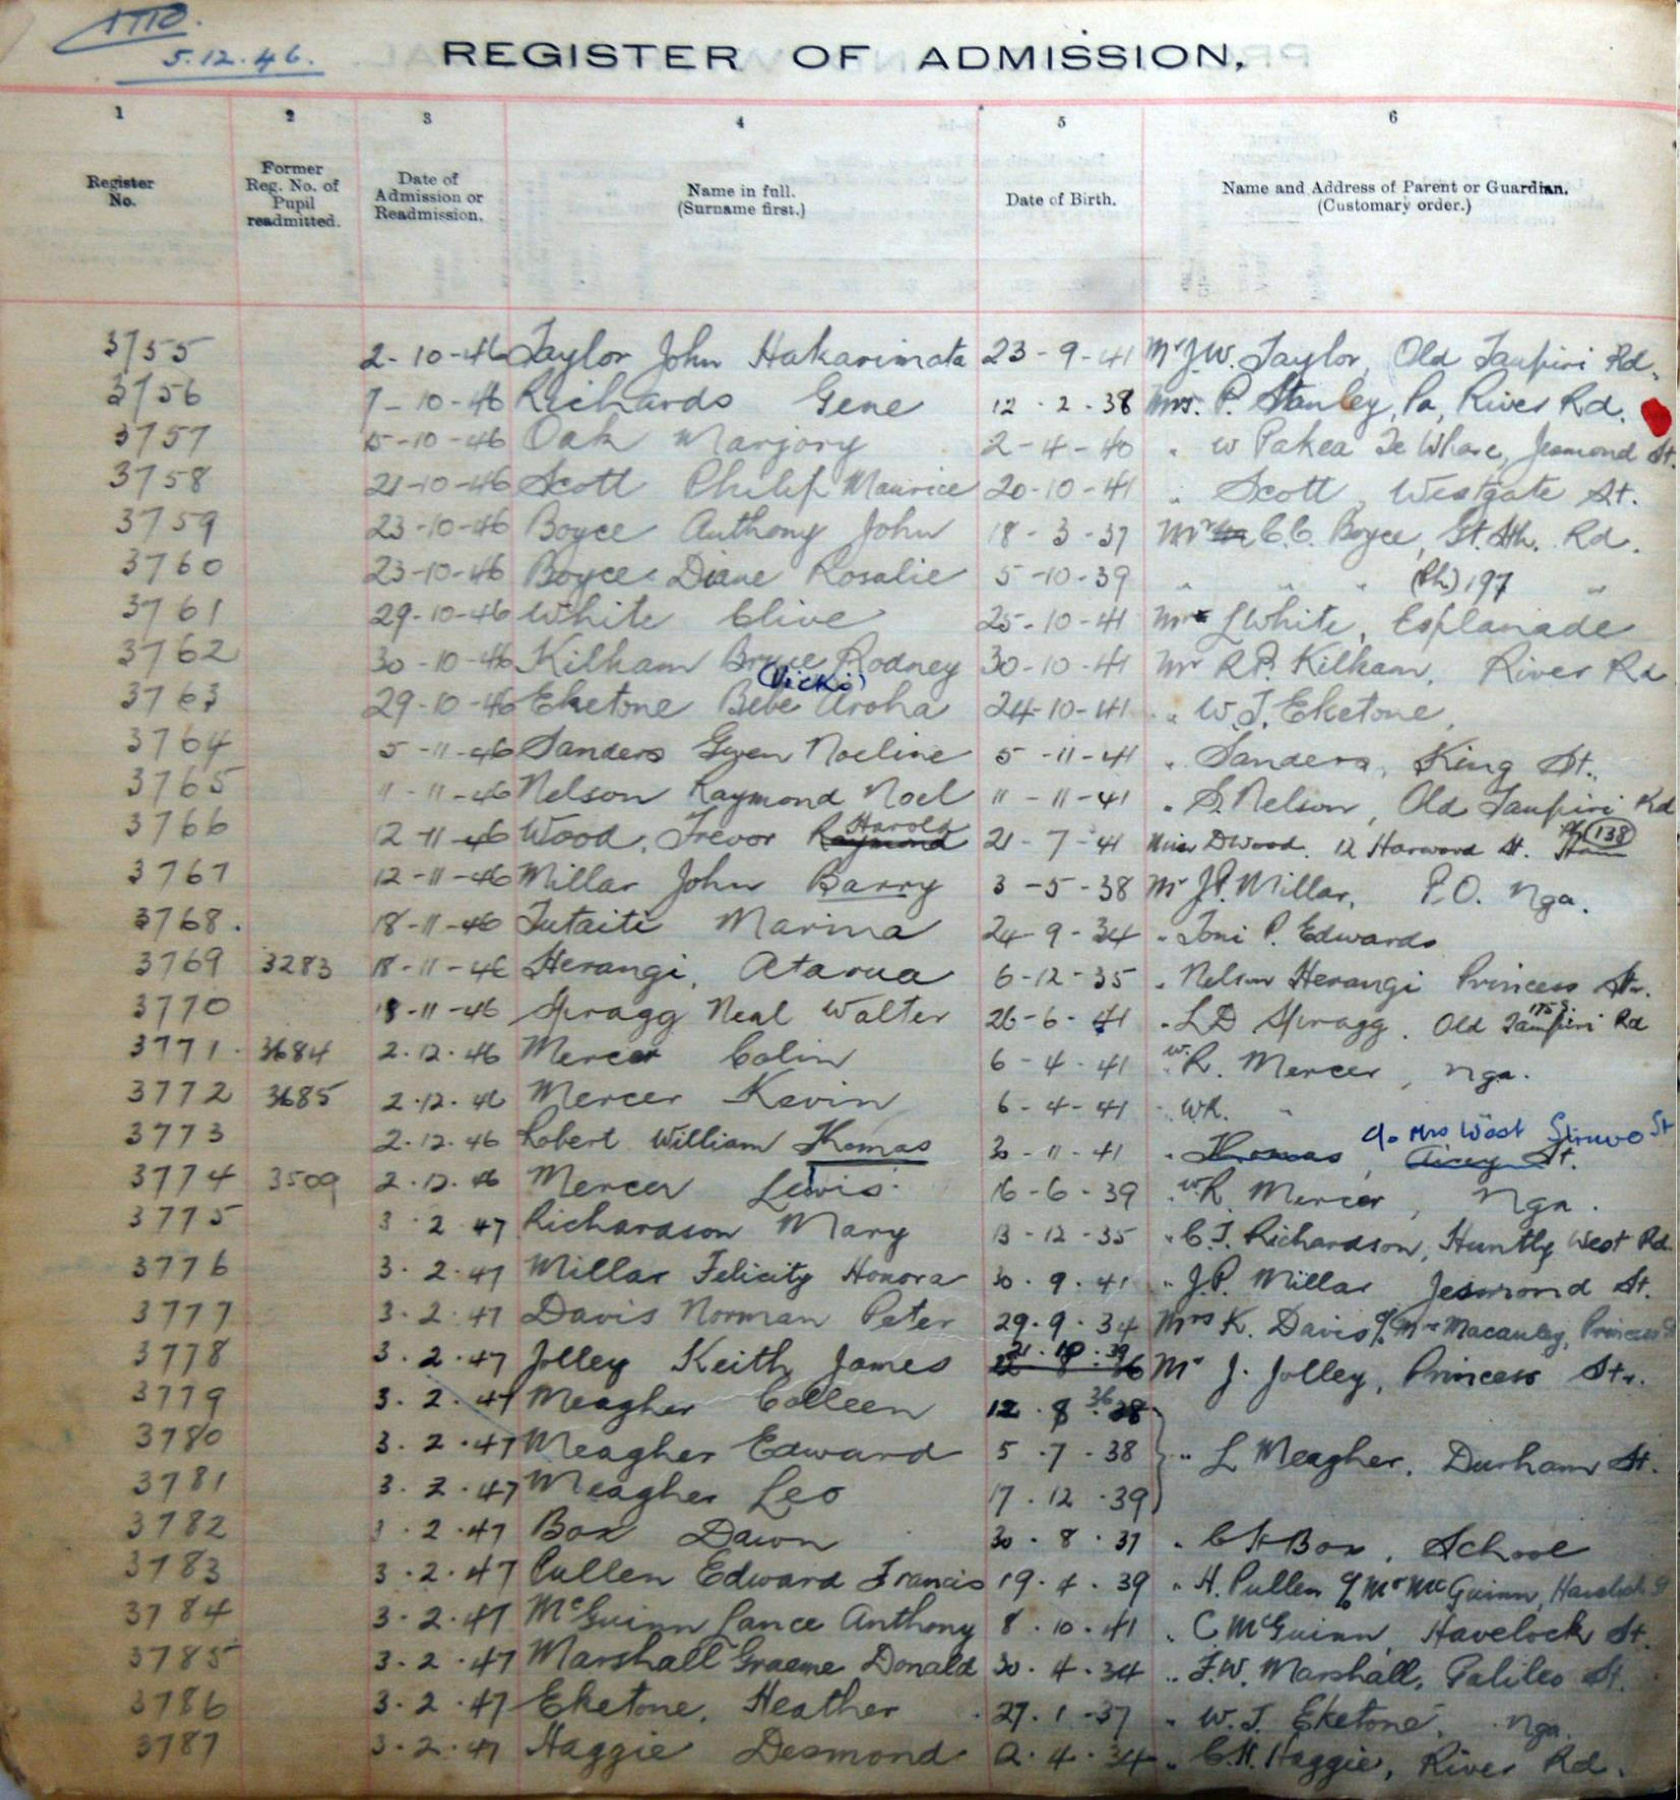 5.12.46.
REGISTER OF ADMISSION.
1 2 3 4 5 6
Register No. Former Reg. No. of Pupil readmitted. Date of Admission or Readmission. Name in full. (Surname first.) Date of Birth. Name and Address of Parent or Guardian. (Customary order.)
3755 2-10-46 Taylor John Hakarimata 23-9-41 Mr J.W. Taylor, Old Taupiri Rd.
3756 7-10-46 Richards Gene 12.2.38 Mrs. P. Stanley, Pa, River Rd.
3757 15-10-46 Oak Marjory 2-4-40 " W Pakea Te Whare, Jesmond St.
3758 21-10-46 Scott Philip Maurice 20-10-41 " Scott, Westgate St.
3759 23-10-46 Boyce Anthony John 18-3-37 Mr C.C. Boyce, Gt. Sth. Rd.
3760 23-10-46 Boyce Diane Rosalie 5-10-39 " " " (Ph) 197 "
3761 29-10-46 White Clive 25-10-41 Mr L White, Esplanade
3762 30-10-46 Kilham Bryce Rodney 30-10-41 Mr R.P. Kilham, River Rd
(Vicki)
3763 29-10-46 Eketone Bebe Aroha 24-10-41 " W.J. Eketone,
3764 5-11-46 Sanders Gwen Noeline 5-11-41 " Sanders, King St.
3765 11-11-46 Nelson Raymond Noel 11-11-41 " S. Nelson, Old Taupiri Rd
Harold 138
3766 12-11-46 Wood, Trevor Raymond 21-7-41 Miss D Wood. 12 Harwood St. Ham
3767 12-11-46 Millar John Barry 3-5-38 Mr J.P. Millar, P.O. Nga.
3768. 18-11-46 Tutaiti Marina 24-9-34 " Toni P. Edwards
3769 3283 18-11-46 Herangi, Atarua 6-12-35 " Nelson Herangi Princess St.
3770 18-11-46 Spragg Neal Walter 26-6-41 " L D Spragg. Old Taupiri Rd
3771. 3684 2.12.46 Mercer Colin 6-4-41 " W.R. Mercer, Nga.
3772 3685 2.12.46 Mercer Kevin 6-4-41 " WR. "
c/o Mrs West Struvo St
3773 2.12.46 Robert William Thomas 30-11-41 " Thomas, St.
3774 3509 2.12.46 Mercer Lewis 16-6-39 " W.R. Mercer, Nga.
3775 3.2.47 Richardson Mary 13-12-35 " C.J. Richardson, Huntly West Rd.
3776 3.2.47 Millar Felicity Honora 30.9.41 " J.P. Millar Jesmond St.
3777 3.2.47 Davis Norman Peter 29.9.34 Mrs K. Davis c/o Mr Macauley, Princess St
21.10.39
3778 3.2.47 Jolley Keith James Mr J. Jolley, Princess St.
36
3779 3.2.47 Meagher Colleen 12.8.38
3780 3.2.47 Meagher Edward 5.7.38 " L Meagher, Durham St.
3781 3.2.47 Meagher Leo 17.12.39
3782 3.2.47 Box Dawn 30.8.37 " C H Box, School
3783 3.2.47 Pullen Edward Francis 19.4.39 " H. Pullen c/o Mr McGuinn, Havelock St
3784 3.2.47 McGuinn Lance Anthony 8.10.41 " C McGuinn, Havelock St.
3785 3.2.47 Marshall Graeme Donald 30.4.34 " F.W. Marshall, Galileo St.
3786 3.2.47 Eketone, Heather 27.1.37 " W.J. Eketone, Nga.
3787 3.2.47 Haggie Desmond 2.4.34 " C.H. Haggie, River Rd.